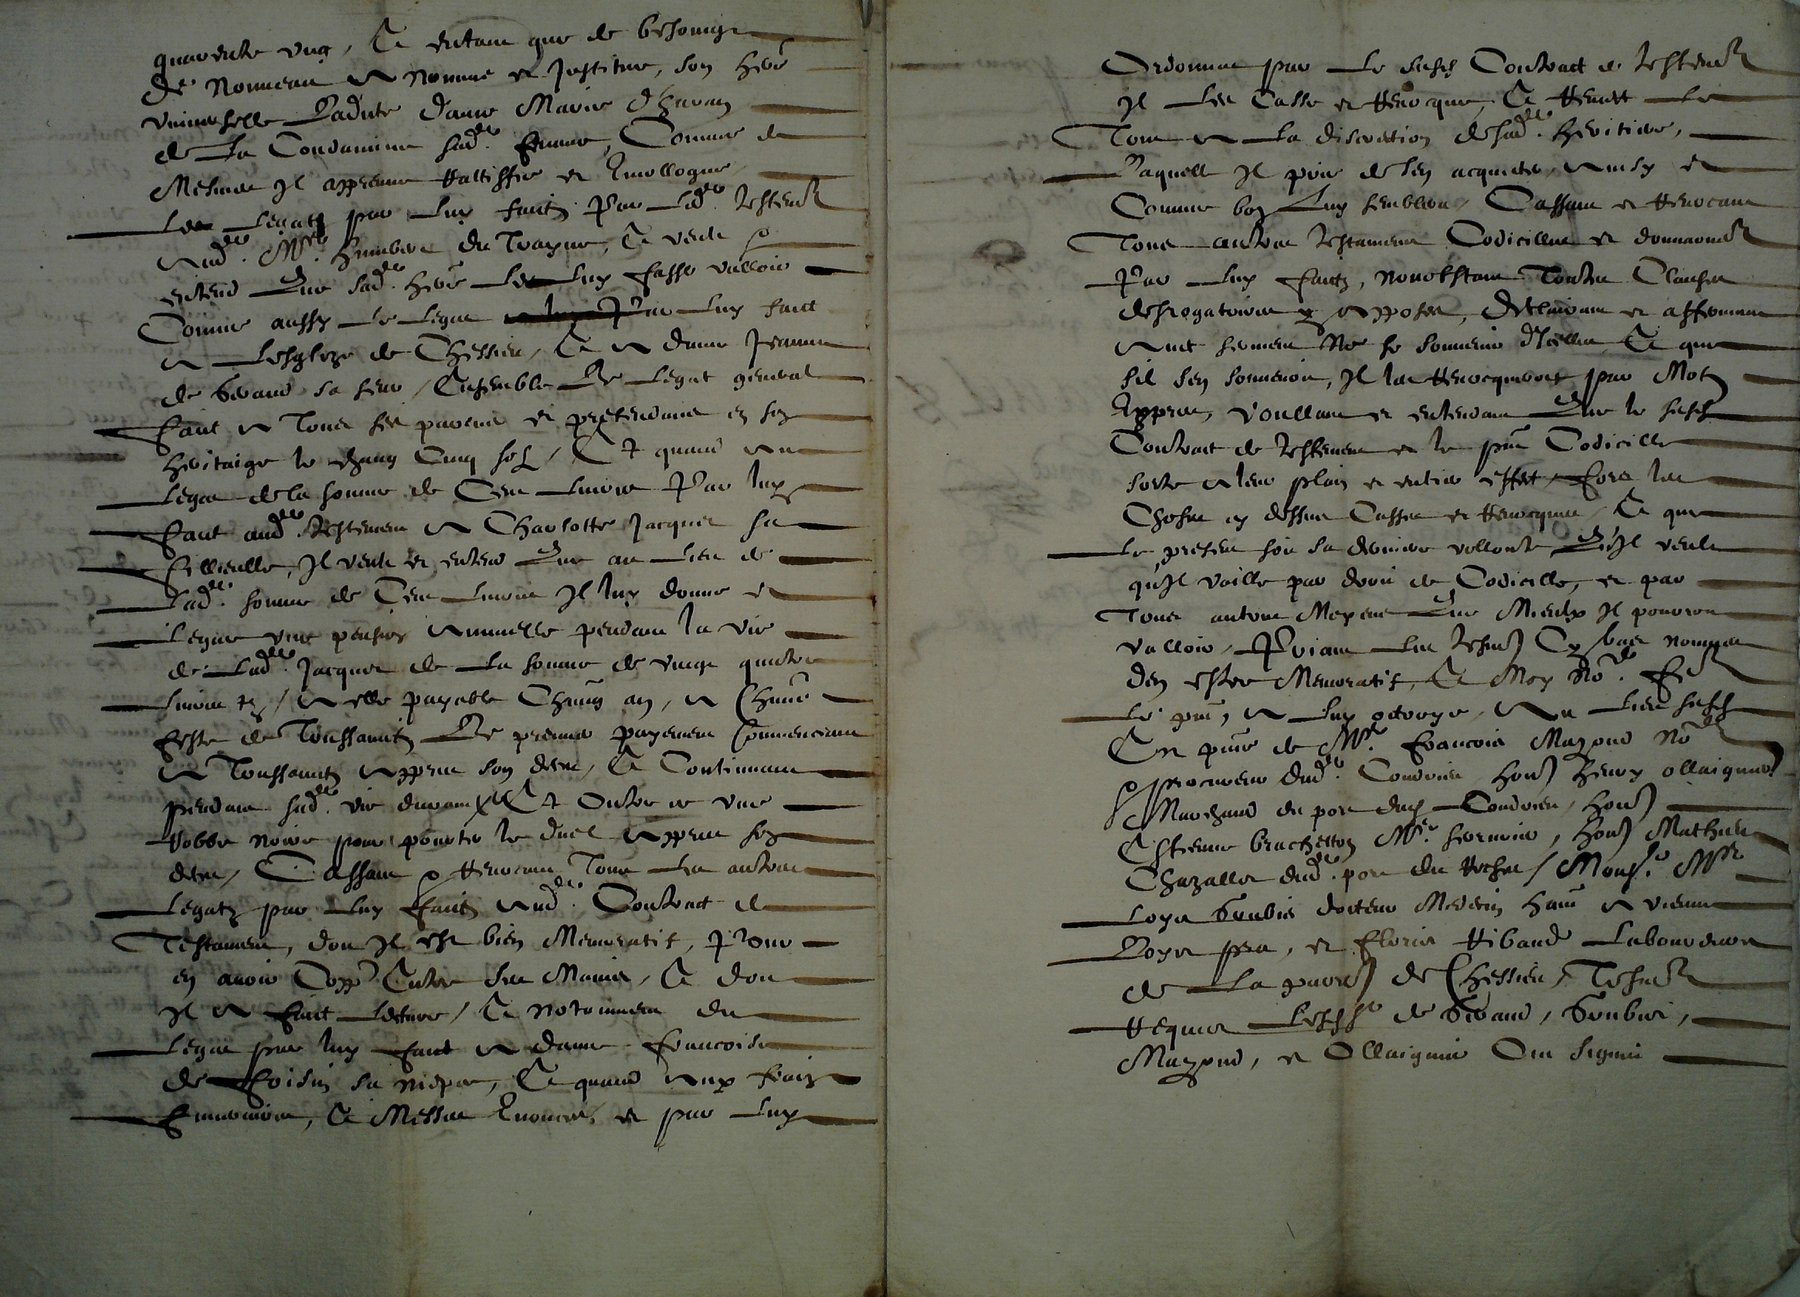 quarente ung, Et entant que de besoing
de nouveau a nommé et Institué, son herᵉ
universelle Ladicte dame Marie
de La Condamine sadᵉ femme, Comme de
Mesme Il appreuve Rattiffie et Emollogue
Les Legatz par Luy faitz Par Ledᵗ testemᵗ
Audᵗ Mʳᵉ Humbert du Troyne, Et veult &
entend Que sadᵉ herᵉ Les Luy fasse valloir
Comme aussy Le Legat Par Luy faict
A Lesglize de Chessieu, Et A dame Jeanne
de sa seur, Ensemble Le Legat general
faict A Tous ses parens et pretendans en son
heritaige de chacung Cinq solz, Et quand Au
Legat de la somme de Cent Livres Par luy
faict audᵗ Testement A Charlotte Jacquet sa
fillieulle, Il veult et entend Que au Lieu de
Ladᵉ somme de Cent Livres Il luy donne et
Legue une pension Annuelle pendant la vie
de Ladᵉ Jacquet de La somme de vingt quatre
livres tz, A elle payable Chacung an, A Chacune
feste de Toussaintz Le premier payement Commenceant
A Toussaintz Appres son deces, Et Continuant
pendant sadᵉ vie durant Et Oultre ce une
Robbe noire pour pourter le dueil Appres son
deces, Cassant & Revocant Tous Les aultres
Legatz par Luy faitz Audᵗ Contract de
Testament, dont Il est bien Memoratif, Pour
en avoir Coppie Entre ses Mains, Et dont
Il A faict Lecture, Et notamment du
Legat par luy faict A dame francoise
de sa niepce, Et quand Aux fraiz
funeraires, Et Messes et par Luy
Ordonnes par Le susd Contract de testemᵗ
Il Les Casse et Revocque, Et Remet Le
Tout A La discretion de sadᵉ heritiere,
Laquelle Il prie de sen acquitter Ainsy et
Comme bon Luy semblera, Cassant et Revocant
Tous aultres testamens Codicilles et donnaonˢ
Par Luy faitz, nonobstant Toutes Clauses
desrogatoires y Apposees, declairant et affermant
Avec serment Ne se souvenir dIcelles, Et que
sil sen souvenoit, Il les Revocqueroit par Motz
Exppres, voullant et entendant Que le susd
Contract de testement et le pnt Codicille
sorte A leur plain et entier effect, fors les
Choses cy dessus Cassees et Revocquees, Et que
Le present soit sa derniere vollonte, Qu'Il veult
qu'Il vaille par droict de Codicille, et par
Tous aultres Moyens Que Mieulx Il pourra
valloir, Priant Les tesmˢ Cy bas nommes
den estre Memoratifz, Et Moy Noʳᵉ
Le pnt, A Luy octroye, Au Lieu susd
En pnce de Mʳᵉ francois Mazard Noʳᵉ
& procureur dudᵗ Condrieu hoñ henry ollaignier
Marchand du port dud Condrieu, hoñ
Estienne Mᵉ serrurier, hoñ Mathieu
Chazalles dudᵗ port du Rosne, Monsʳ Mʳᵉ
Loys docteur Medecin habᵗ A vienne
et floris Riband Laboureur
de La parrˢˢ de Chessieu, Tesmˢ
Requis
Mazard, et Ollaignier Ont signé